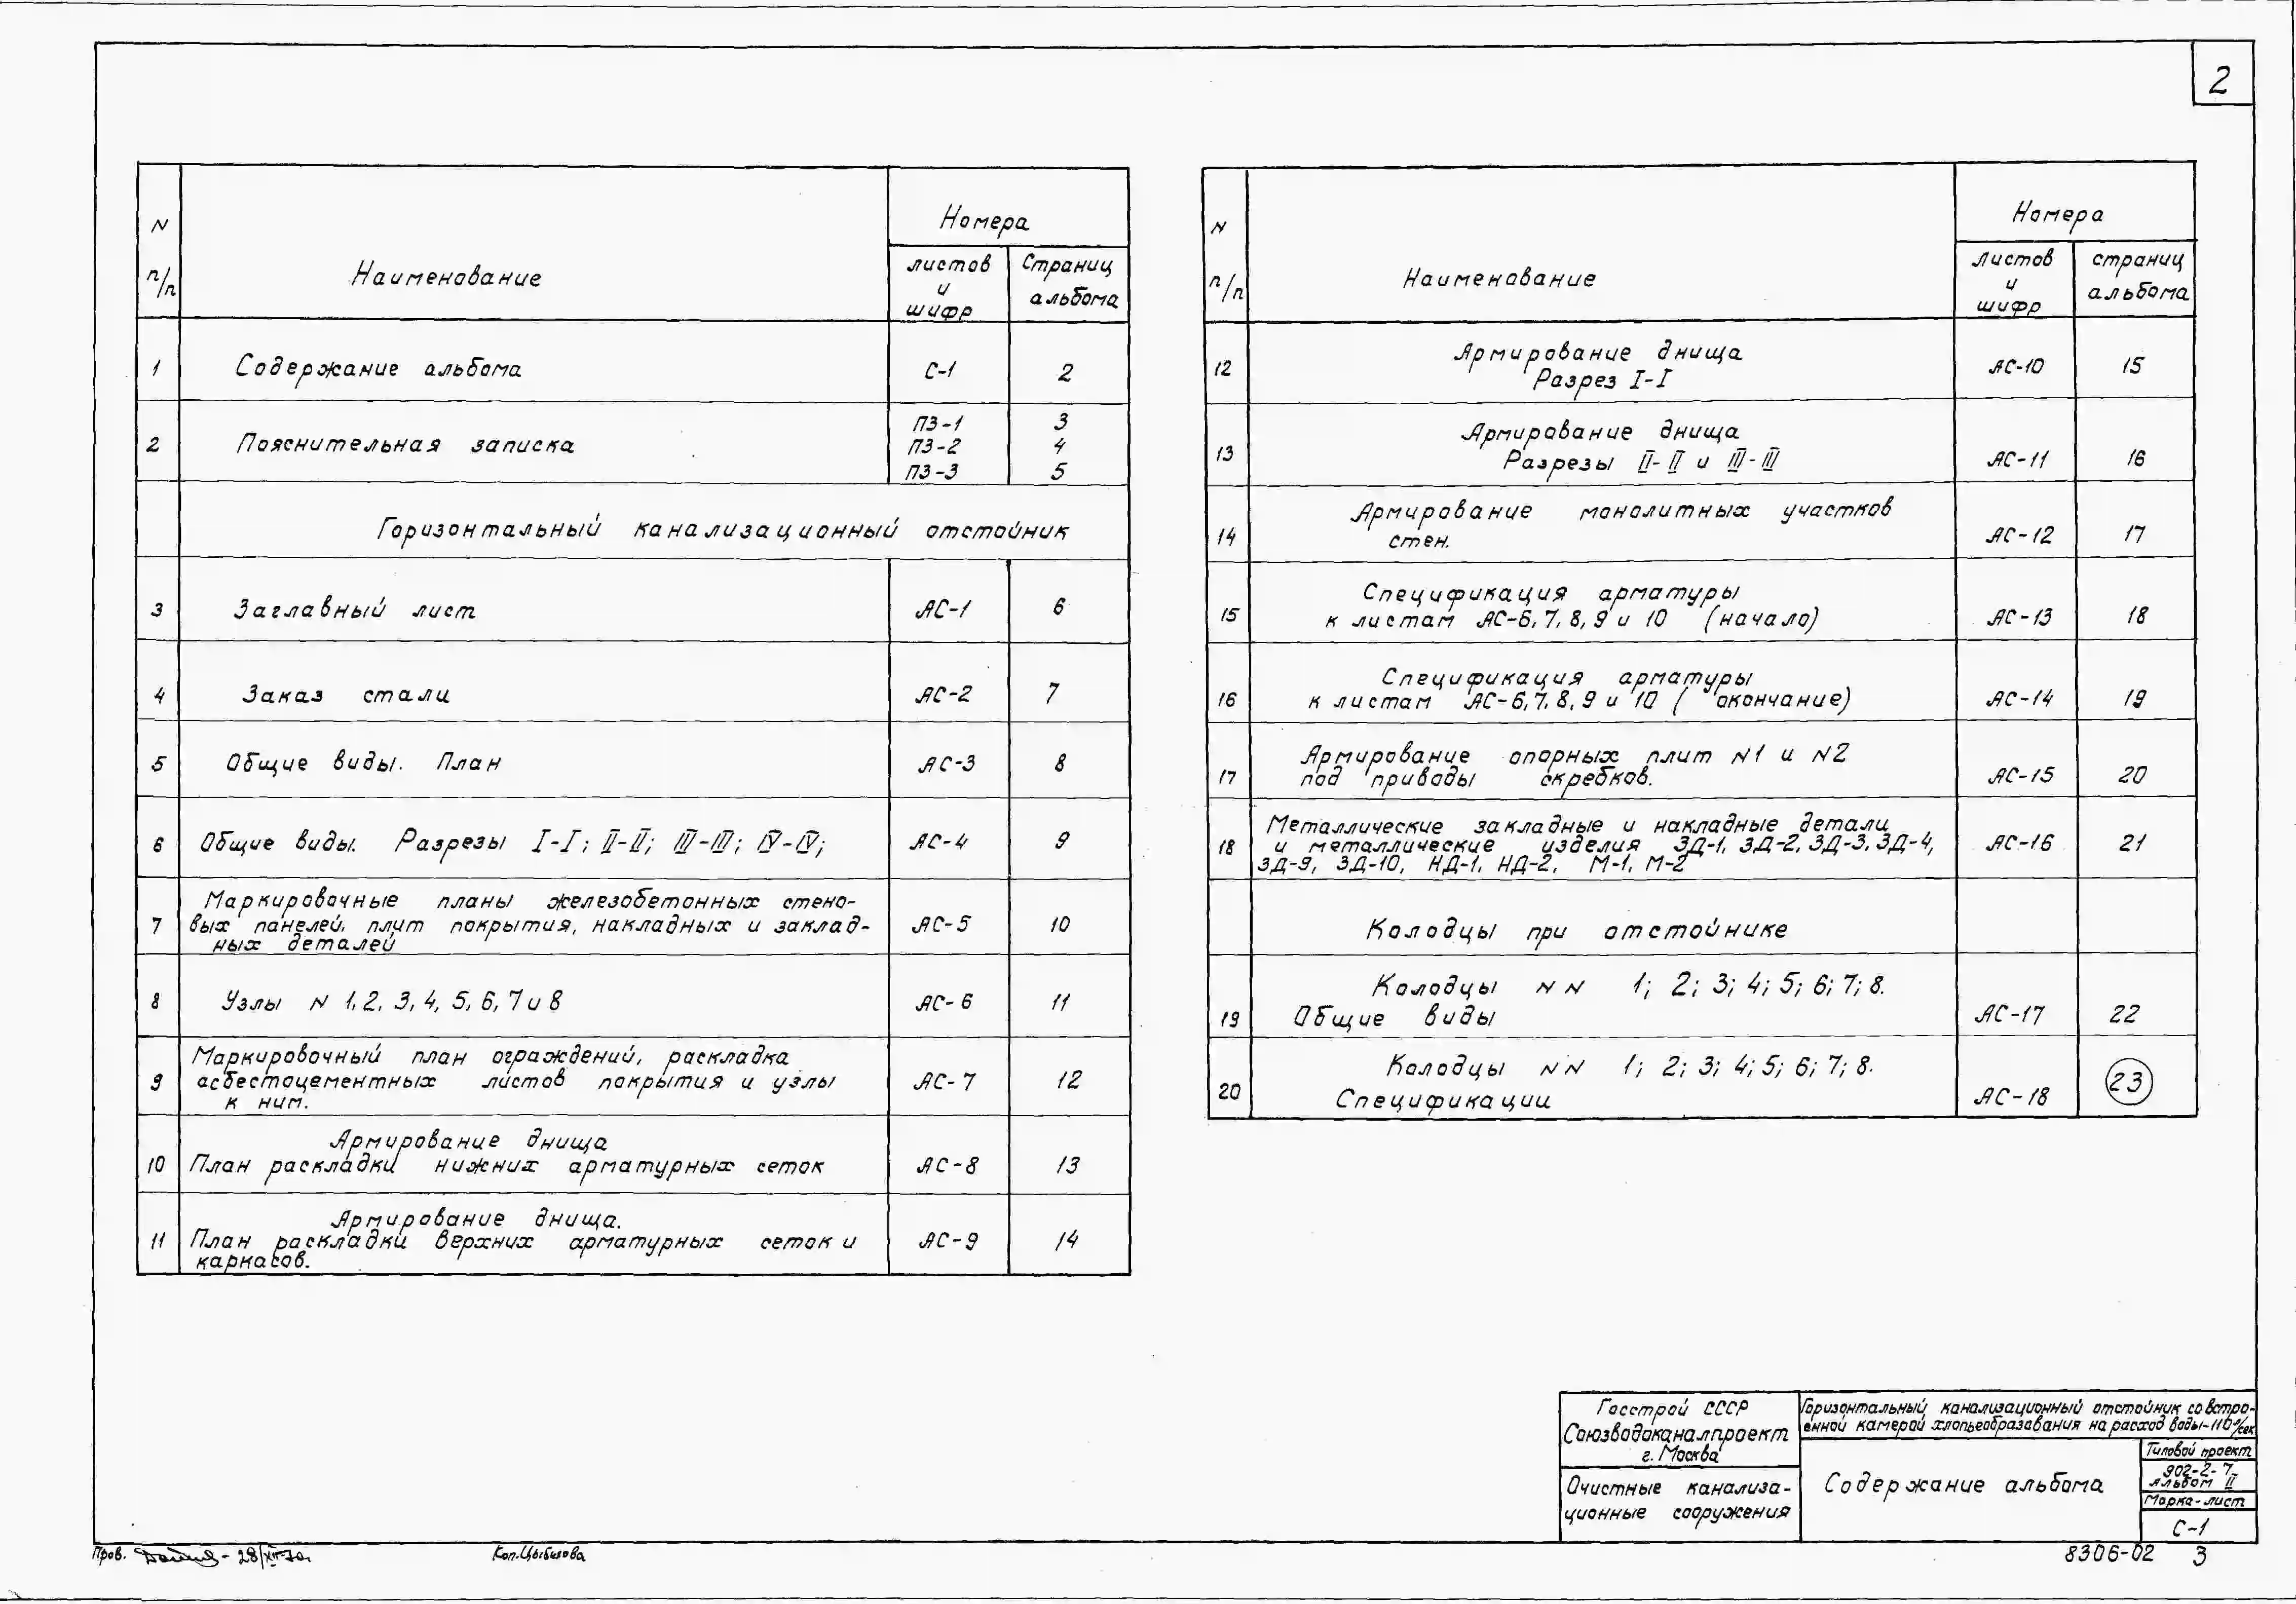 2
N п/п
Наименование
Номера
листов и шифр
Страниц альбома
1 Содержание альбома С-1 2
2 Пояснительная записка
ПЗ-1 3
ПЗ-2 4
ПЗ-3 5
Горизонтальный канализационный отстойник
3 Заглавный лист АС-1 6
4 Заказ стали АС-2 7
5 Общие виды. План АС-3 8
6 Общие виды. Разрезы I-I; II-II; III-III; IV-IV; АС-4 9
Маркировочные планы железобетонных стено-
7 вых панелей, плит покрытия, накладных и заклад- АС-5 10
ных деталей
8 Узлы N 1, 2, 3, 4, 5, 6, 7 и 8 АС-6 11
Маркировочный план ограждений, раскладка
9 асбестоцементных листов покрытия и узлы АС-7 12
к ним.
Армирование днища
10 План раскладки нижних арматурных сеток АС-8 13
Армирование днища.
11 План раскладки верхних арматурных сеток и АС-9 14
каркасов.
N п/п
Наименование
Номера
листов и шифр
страниц альбома
12 Армирование днища АС-10 15
Разрез I-I
Армирование днища
13 Разрезы II-II и III-III АС-11 16
Армирование монолитных участков
14 стен. АС-12 17
Спецификация арматуры
15 к листам АС-6, 7, 8, 9 и 10 (начало) АС-13 18
Спецификация арматуры
16 к листам АС-6, 7, 8, 9 и 10 (окончание) АС-14 19
Армирование опорных плит N1 и N2
17 под приводы скребков. АС-15 20
Металлические закладные и накладные детали
18 и металлические изделия ЗД-1, ЗД-2, ЗД-3, ЗД-4, АС-16 21
ЗД-9, ЗД-10, НД-1, НД-2, М-1, М-2
Колодцы при отстойнике
Колодцы NN 1; 2; 3; 4; 5; 6; 7; 8.
19 Общие виды АС-17 22
Колодцы NN 1; 2; 3; 4; 5; 6; 7; 8.
20 Спецификации АС-18 23
Госстрой СССР
Союзводоканалпроект
г. Москва
Очистные канализа-
ционные сооружения
Горизонтальный канализационный отстойник со встро-
енной камерой хлопьеобразования на расход воды-110 л/сек
Содержание альбома
Типовой проект
902-2-7
Альбом II
Марка-лист
С-1
Пров. 28/XII-70г
Коп. Цыбизова
8306-02 3